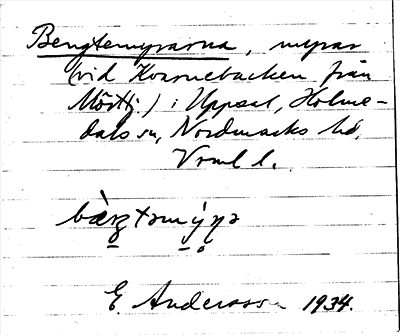 Bengtemyrarna, myrar
(vid Kvarnebacken från
Mört:) i Uppsal, Holme-
dals sn, Nordmarks hd,
Vrml l.
E. Andersson 1934.